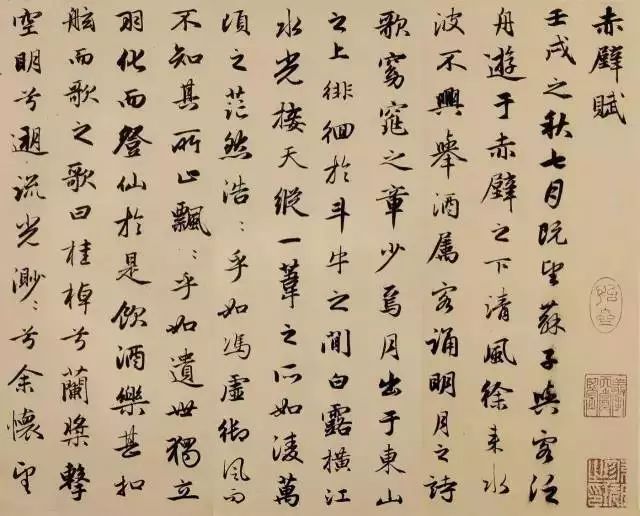 赤壁賦
壬戌之秋七月既望蘇子與客泛
舟遊于赤壁之下清風徐来水
波不興舉酒属客誦明月之詩
歌窈窕之章少焉月出于東山
之上徘徊於斗牛之間白露橫江
水光接天縱一葦之所如凌萬
頃之茫然浩〻乎如馮虛御風而
不知其所止飄〻乎如遺世獨立
羽化而登仙於是飲酒樂甚扣
舷而歌之歌曰桂棹兮蘭槳擊
空明兮遡流光渺〻兮余懷望